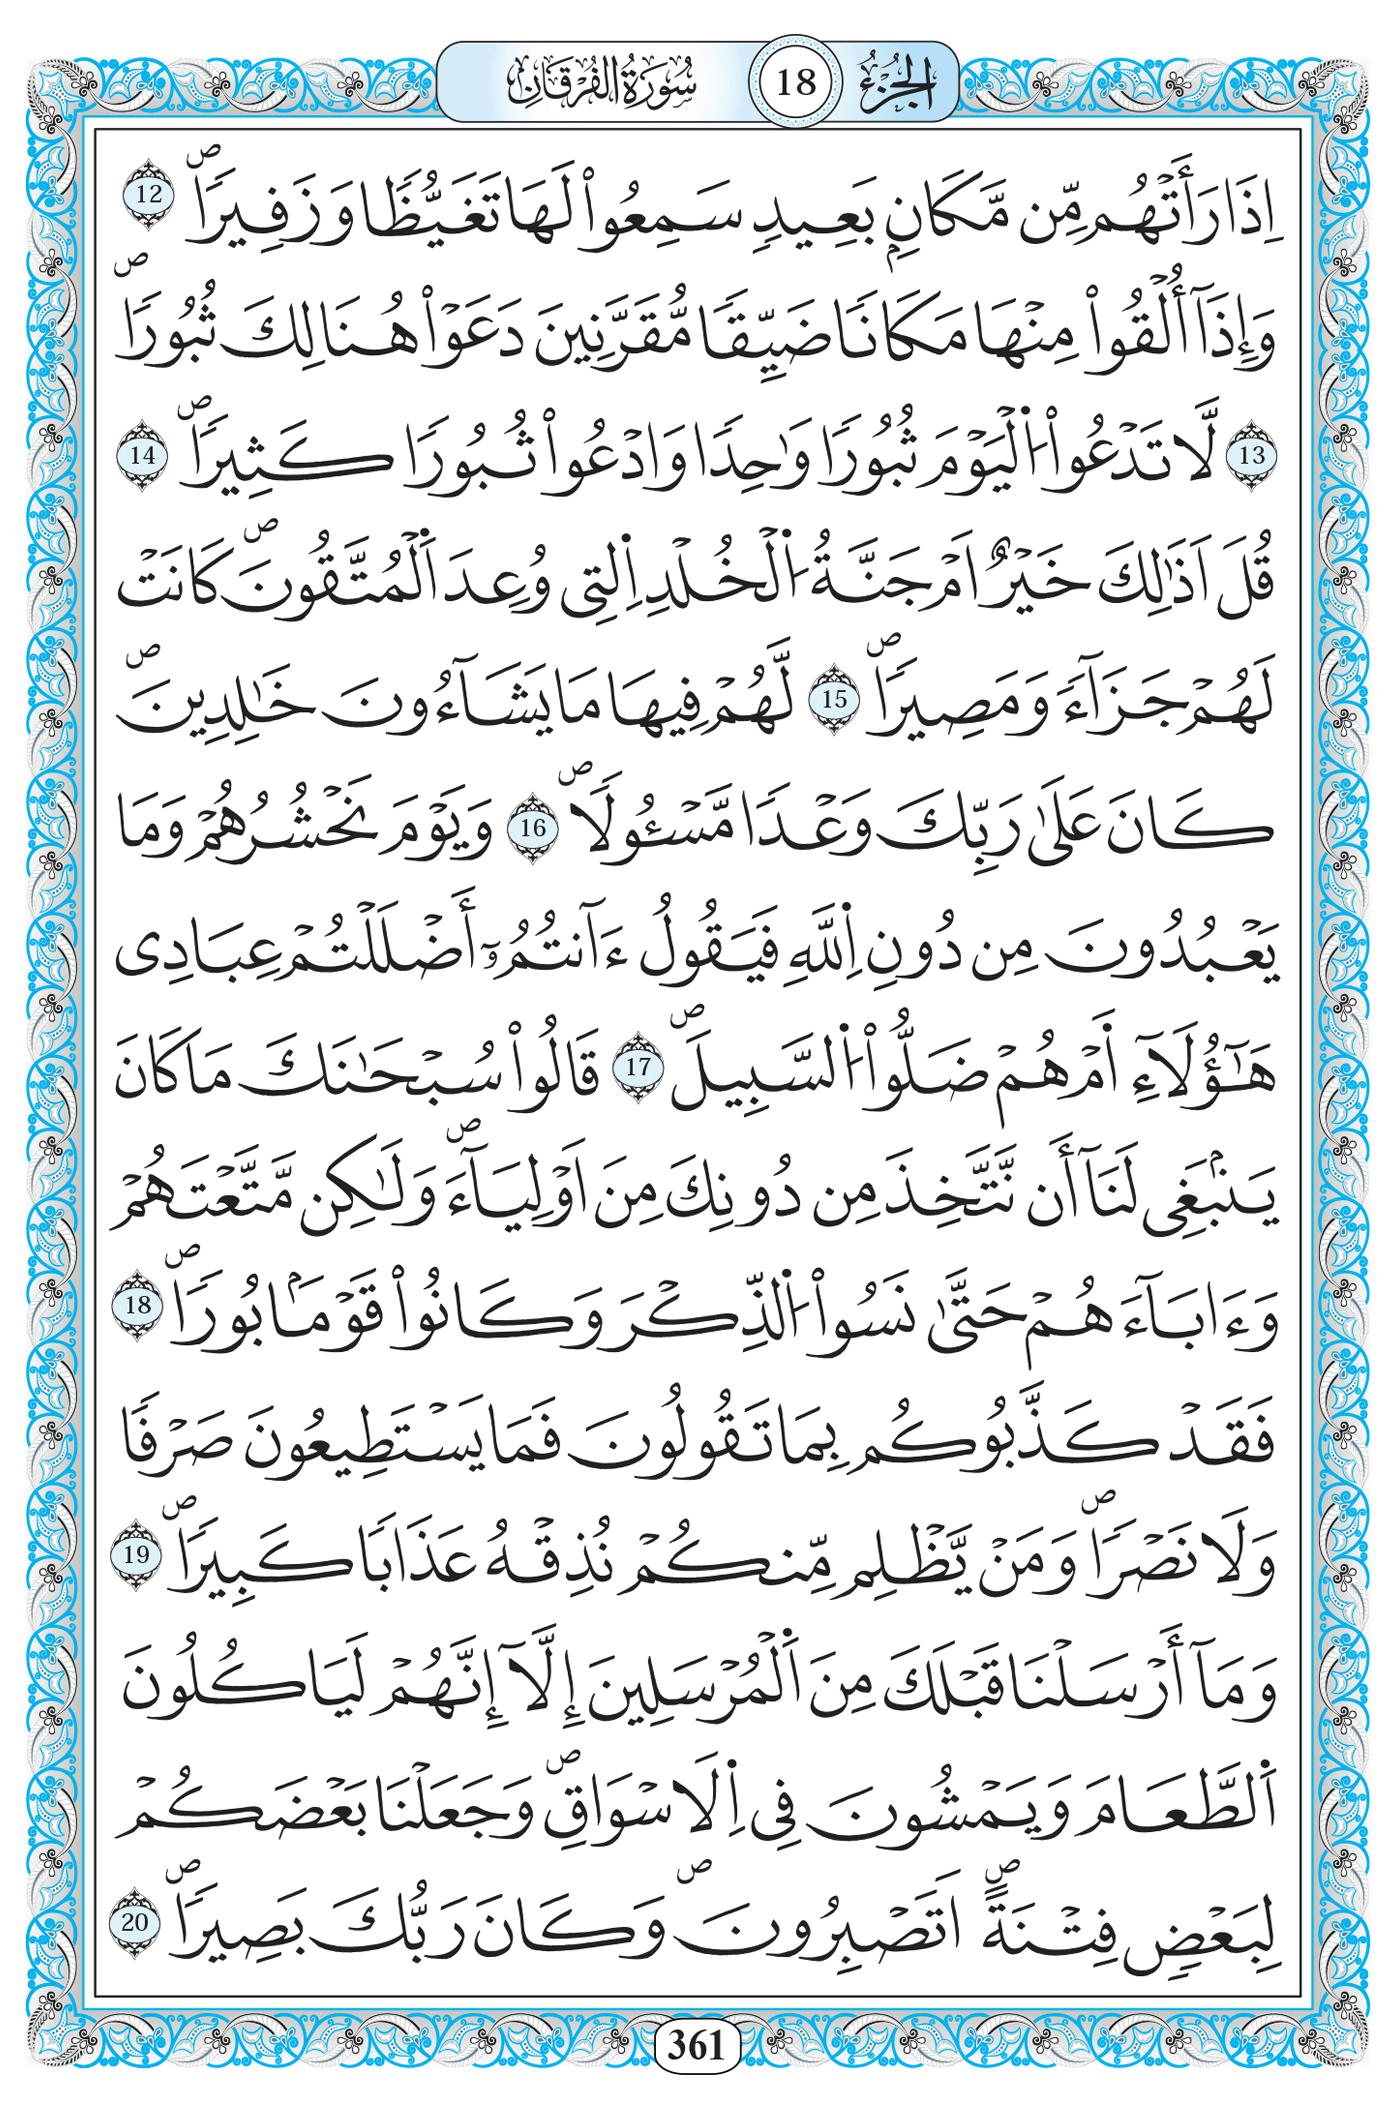 الجزء 18 سورة الفرقان
اِذَا رَأَتْهُم مِّن مَّكَانِۢ بَعِيدٖ سَمِعُواْ لَهَا تَغَيُّظاٗ وَزَفِيراٗۖ 12
وَإِذَآ أُلْقُواْ مِنْهَا مَكَاناٗ ضَيِّقاٗ مُّقَرَّنِينَ دَعَوْاْ هُنَالِكَ ثُبُوراٗۖ
13 لَّا تَدْعُواْ اُ۬لْيَوْمَ ثُبُوراٗ وَٰحِداٗ وَادْعُواْ ثُبُوراٗ كَثِيراٗۖ 14
قُلَ اَذَٰلِكَ خَيْرٌ اَمْ جَنَّةُ اُ۬لْخُلْدِ اِ۬لتِے وُعِدَ اَ۬لْمُتَّقُونَۖ كَانَتْ
لَهُمْ جَزَآءٗ وَمَصِيراٗۖ 15 لَّهُمْ فِيهَا مَا يَشَآءُونَ خَٰلِدِينَۖ
كَانَ عَلَىٰ رَبِّكَ وَعْداٗ مَّسْـُٔولاٗۖ 16 وَيَوْمَ نَحْشُرُهُمْ وَمَا
يَعْبُدُونَ مِن دُونِ اِ۬للَّهِ فَيَقُولُ ءَآنتُمُۥٓ أَضْلَلْتُمْ عِبَادِے
هَٰٓؤُلَآءِ أَمْ هُمْ ضَلُّواْ اُ۬لسَّبِيلَۖ 17 قَالُواْ سُبْحَٰنَكَ مَا كَانَ
يَنۢبَغِے لَنَآ أَن نَّتَّخِذَ مِن دُونِكَ مِنَ اَوْلِيَآءَۖ وَلَٰكِن مَّتَّعْتَهُمْ
وَءَابَآءَهُمْ حَتَّىٰ نَسُواْ اُ۬لذِّكْرَ وَكَانُواْ قَوْماَۢ بُوراٗۖ 18
فَقَدْ كَذَّبُوكُم بِمَا تَقُولُونَ فَمَا يَسْتَطِيعُونَ صَرْفاٗ
وَلَا نَصْراٗۖ وَمَنْ يَّظْلِم مِّنكُمْ نُذِقْهُ عَذَاباٗ كَبِيراٗۖ 19
وَمَآ أَرْسَلْنَا قَبْلَكَ مِنَ اَ۬لْمُرْسَلِينَ إِلَّآ إِنَّهُمْ لَيَاكُلُونَ
اَ۬لطَّعَامَ وَيَمْشُونَ فِے اِ۬لَاسْوَاقِۖ وَجَعَلْنَا بَعْضَكُمْ
لِبَعْضٖ فِتْنَةًۖ اَتَصْبِرُونَۖ وَكَانَ رَبُّكَ بَصِيراٗۖ 20
361